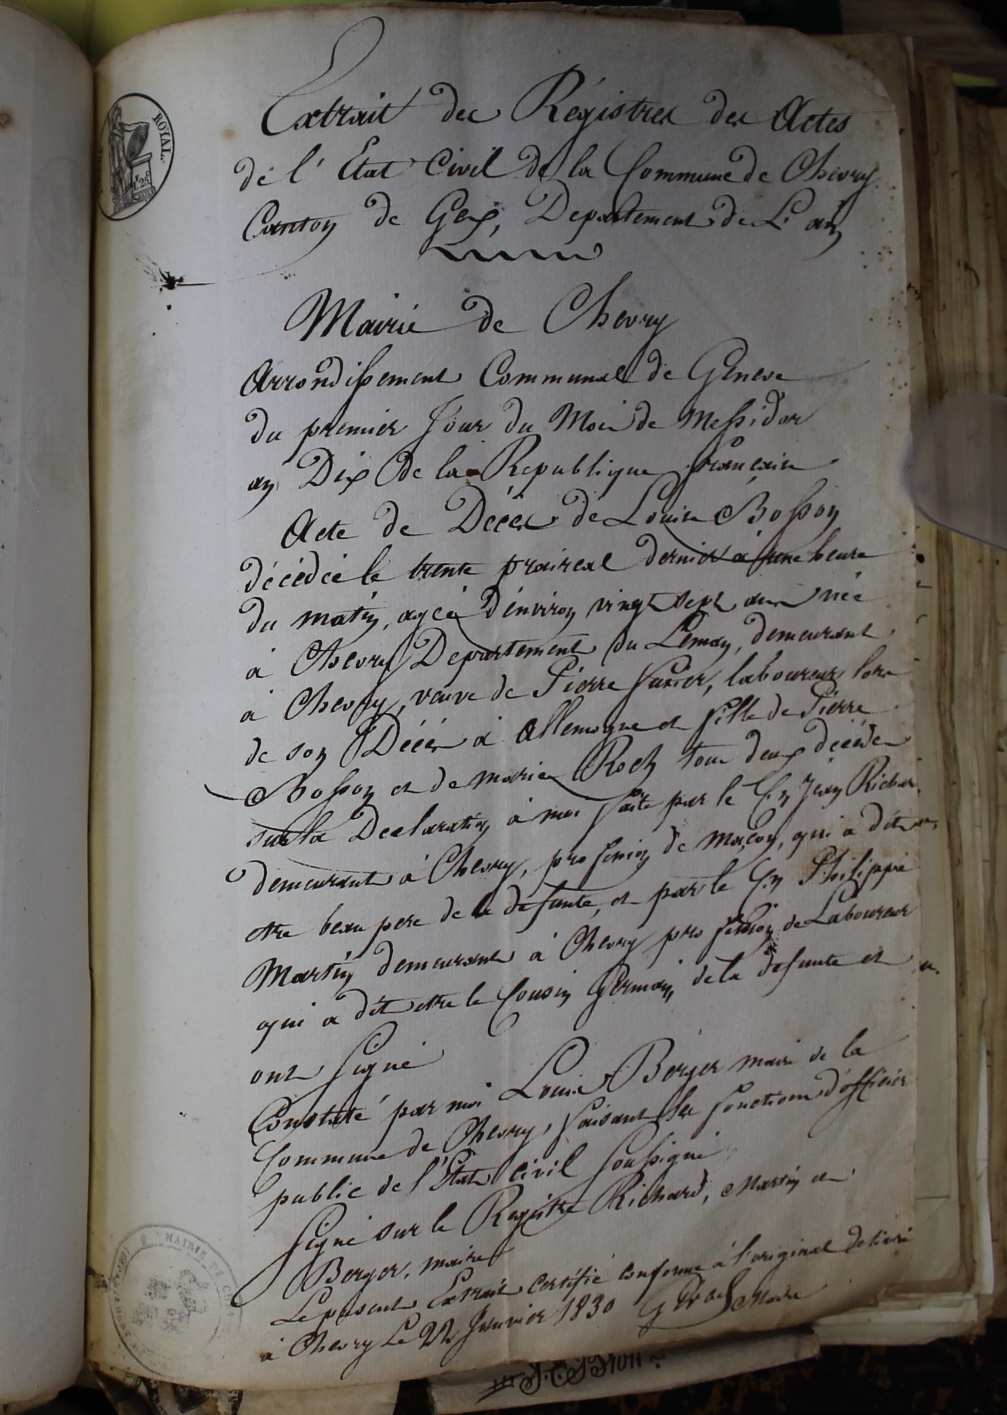 ROYAL.
Extrait des Régistres des Actes
de l'Etat Civil de la Commune de Chevry
Canton de Gex, Departement de L'ain
Mairie de Chevry
Arrondissement Communal de Geneve
du premier Jour du Mois de Messidor
an Dix de la Republique francaise
Acte de Décès de Louise Bosson
décédée le trente praireal dernier à une heure
du matin, agée d'environ vingt sept ans née
à Chevry Departement du Léman, demeurant
à Chevry, veuve de Pierre laboureur lors
de son Décès à Allemogne et fille de Pierre
Bosson et de marie Roch tous deux décédés
sur la Declaration à moi faite par le C.n Jean Richard
demeurant à Chevry, profession de maçon, qui a dit
etre beau pere de la defunte, et par le C.n Philippe
Martin demeurant à Chevry profession de Laboureur
qui a dit etre le Cousin Germain de la defunte et
ont Signé
Constaté par moi Louis Berger maire de la
Commune de Chevry, faisant les fonctions d'officier
public de l'Etat Civil soussigné
Signé sur le Registre Richard, Martin et
Berger, maire
Le present Extrait certifié conforme à l'original delivré
à Chevry Le 22 Janvier 1830 Maire
MAIRIE DE